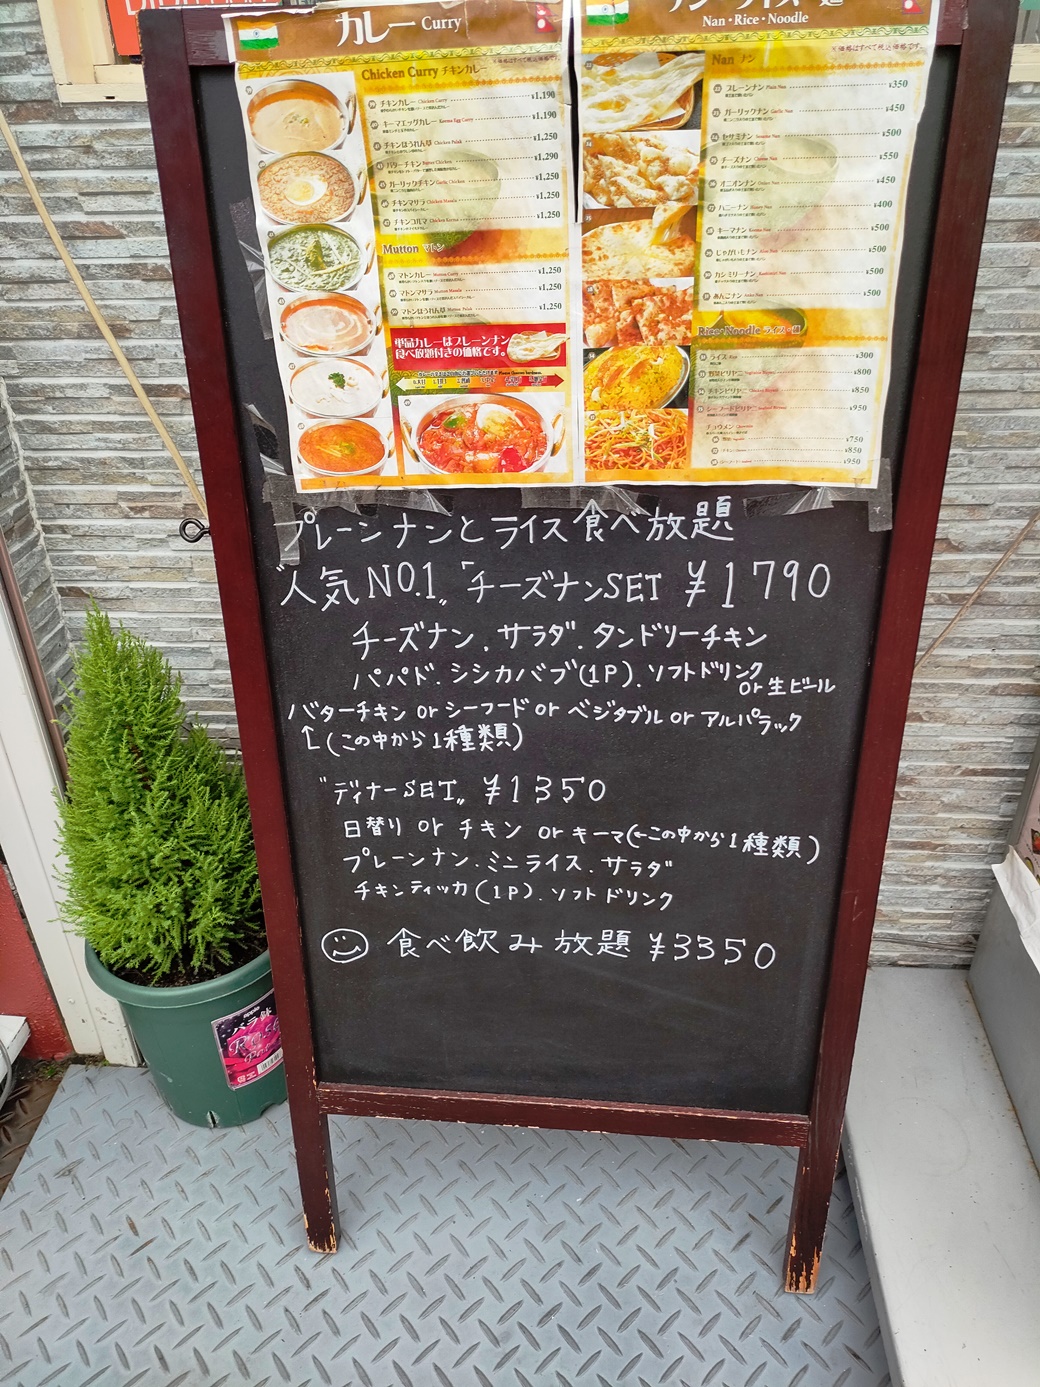 カレー Curry
※価格はすべて税込価格です。
Chicken Curry チキンカレー
チキンカレー Chicken Curry ¥1,190
キーマエッグカレー Keema Egg Curry ¥1,190
チキンほうれん草 Chicken Palak ¥1,250
バターチキン Butter Chicken ¥1,290
ガーリックチキン Garlic Chicken ¥1,250
チキンマサラ Chicken Masala ¥1,250
チキンコルマ Chicken Korma ¥1,250
Mutton マトン
マトンカレー Mutton Curry ¥1,250
マトンマサラ Mutton Masala ¥1,250
マトンほうれん草 Mutton Palak ¥1,250
単品カレーはプレーンナン
食べ放題付きの価格です。
Nan・Rice・Noodle
※価格はすべて税込価格です。
Nan ナン
プレーンナン Plain Nan ¥350
ガーリックナン Garlic Nan ¥450
セサミナン Sesame Nan ¥500
チーズナン Cheese Nan ¥550
オニオンナン Onion Nan ¥450
ハニーナン Honey Nan ¥400
キーマナン Keema Nan ¥500
じゃがいもナン Aloo Nan ¥500
カシミリーナン Kashmiri Nan ¥500
あんこナン Anko Nan ¥500
Rice・Noodle ライス・麺
ライス Rice ¥300
野菜ビリヤニ ¥800
チキンビリヤニ ¥850
シーフードビリヤニ ¥950
チョウメン Chowmein
野菜 ¥750
チキン ¥850
¥950
プレーンナンとライス食べ放題
"人気NO.1" 「チーズナンSET ¥1790
チーズナン.サラダ.タンドリーチキン
パパド.シシカバブ(1P).ソフトドリンク
or 生ビール
バターチキン or シーフード or ベジタブル or アルパラック
↑(この中から1種類)
"ディナーSET" ¥1350
日替り or チキン or キーマ(←この中から1種類)
プレーンナン.ミニライス.サラダ
チキンティッカ(1P).ソフトドリンク
食べ飲み放題 ¥3350
バラ鉢